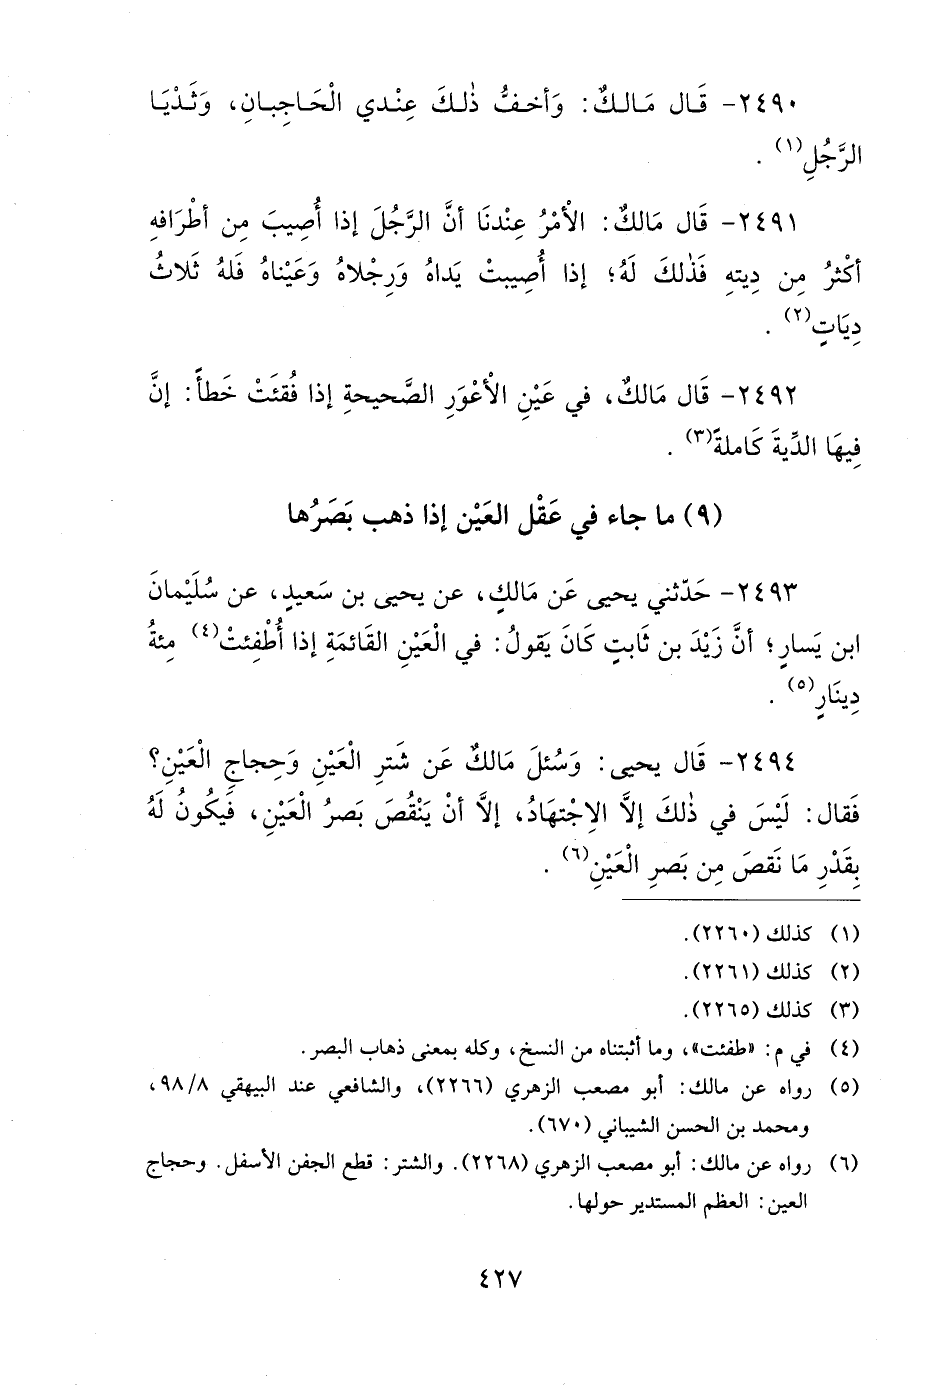 ٢٤٩٠- قَال مَالكٌ: وَأخفُّ ذٰلكَ عِنْدي الْحَاجِبانِ، وَثَدْيَا
الرَّجُلِ(١) .
٢٤٩١- قَال مَالكٌ: الْأمْرُ عِنْدنَا أنَّ الرَّجُلَ إذا أُصِيبَ مِن أطْرَافهِ
أكْثرُ مِن دِيتهِ فَذٰلكَ لَهُ؛ إذا أُصِيبتْ يَداهُ وَرِجْلاهُ وَعَيْناهُ فَلهُ ثَلاثُ
دِيَاتٍ(٢) .
٢٤٩٢- قَال مَالكٌ، في عَيْنِ الأعْوَرِ الصَّحيحةِ إذا فُقئَتْ خَطأً: إنَّ
فِيهَا الدِّيةَ كَاملةً(٣) .
(٩) ما جاء في عَقْل العَيْن إذا ذهب بَصَرُها
٢٤٩٣- حَدّثني يحيى عَن مَالكٍ، عن يحيى بن سَعيدٍ، عن سُلَيْمانَ
ابن يَسارٍ؛ أنَّ زَيْدَ بن ثَابتٍ كَانَ يَقولُ: في الْعَيْنِ القَائمَةِ إذا أُطْفِئتْ(٤) مِئةُ
دِينَارٍ(٥) .
٢٤٩٤- قَال يحيى: وَسُئلَ مَالكٌ عَن شَترِ الْعَيْنِ وَحِجاجِ الْعَيْنِ؟
فَقال: لَيْسَ في ذٰلكَ إلَّا الاِجْتهَادُ، إلَّا أنْ يَنْقُصَ بَصرُ الْعَيْنِ، فَيكُونُ لَهُ
بِقَدْرِ مَا نَقصَ مِن بَصرِ الْعَيْنِ(٦) .
(١) كذلك (٢٢٦٠).
(٢) كذلك (٢٢٦١).
(٣) كذلك (٢٢٦٥).
(٤) في م: «طفئت»، وما أثبتناه من النسخ، وكله بمعنى ذهاب البصر.
(٥) رواه عن مالك: أبو مصعب الزهري (٢٢٦٦)، والشافعي عند البيهقي ٩٨/٨،
ومحمد بن الحسن الشيباني (٦٧٠).
(٦) رواه عن مالك: أبو مصعب الزهري (٢٢٦٨). والشتر: قطع الجفن الأسفل. وحجاج
العين: العظم المستدير حولها.
٤٢٧